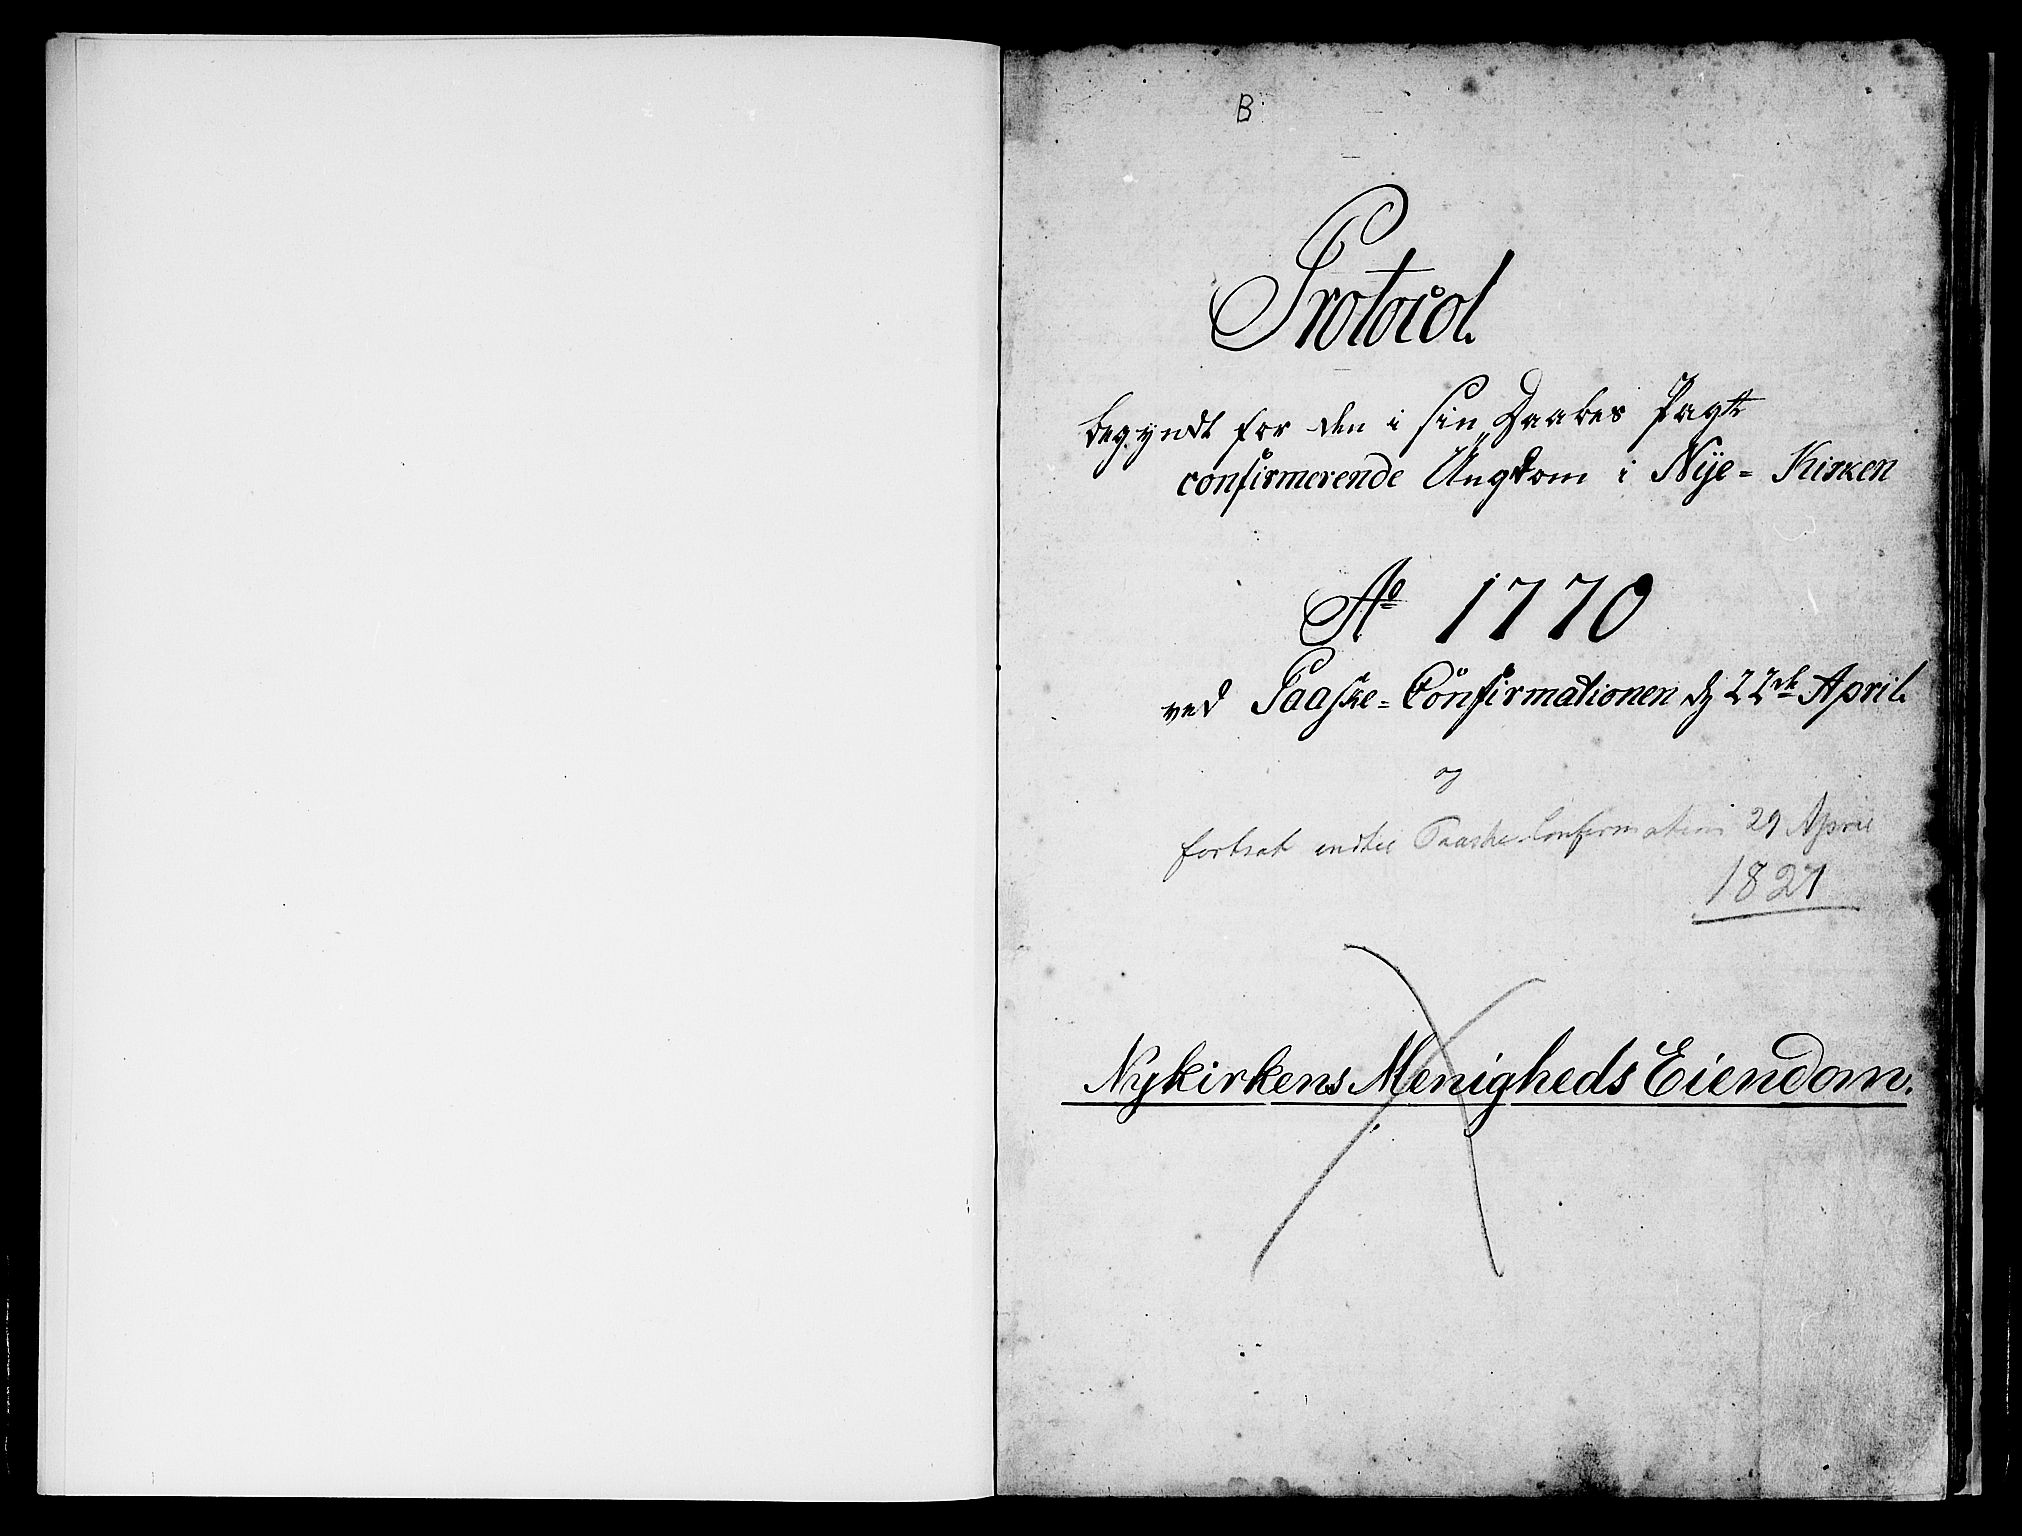 B
Protocol.
begyndt for den i sin Daabes Pagt
confirmerende Ungdom i Nÿe= Kirken
Aº 1770
ved Paaske=Confirmationen d 22de April.
og
fortsat indtil Paaske-Confirmation 29 April
1821
Nykirkens Menigheds Eiendom.